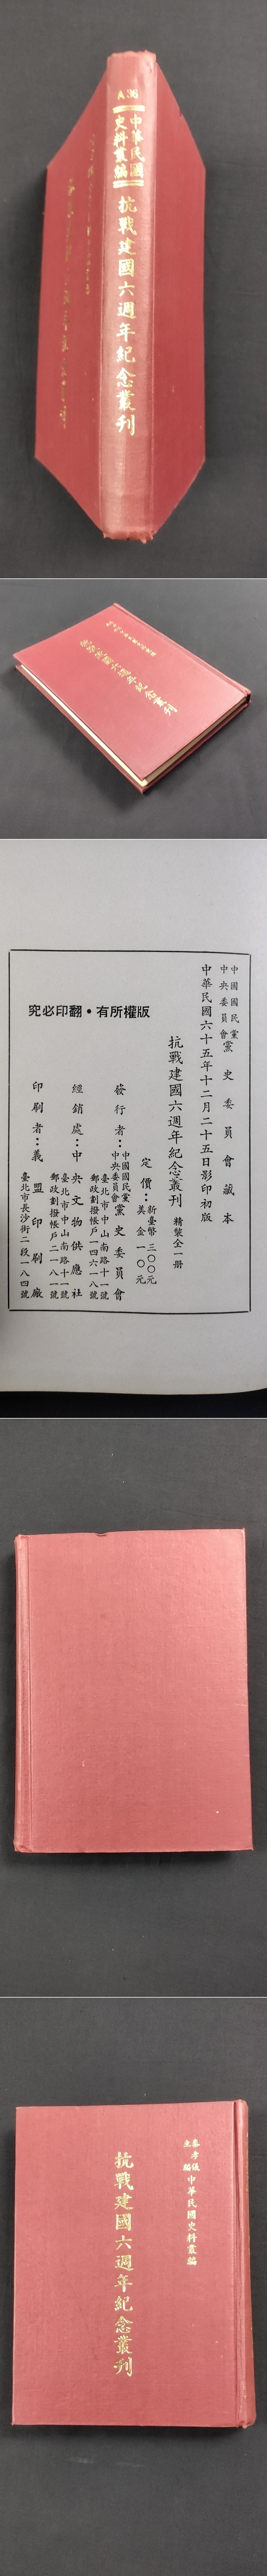 A 36
中華民國
史料叢編
抗戰建國六週年紀念叢刊
抗戰建國六週年紀念叢刊
中國國民黨
中央委員會
黨史委員會藏本
中華民國六十五年十二月二十五日影印初版
版權所有・翻印必究
抗戰建國六週年紀念叢刊 精裝全一冊
定價：新臺幣 三〇〇元
美金 一〇元
發行者：中國國民黨
中央委員會黨史委員會
臺北市中山南路十一號
郵政劃撥帳戶一四六一八號
經銷處：中央文物供應社
臺北市中山南路十一號
郵政劃撥帳戶二一八一號
印刷者：義盟印刷廠
臺北市長沙街二段一八四號
秦孝儀
主編
中華民國史料叢編
抗戰建國六週年紀念叢刊